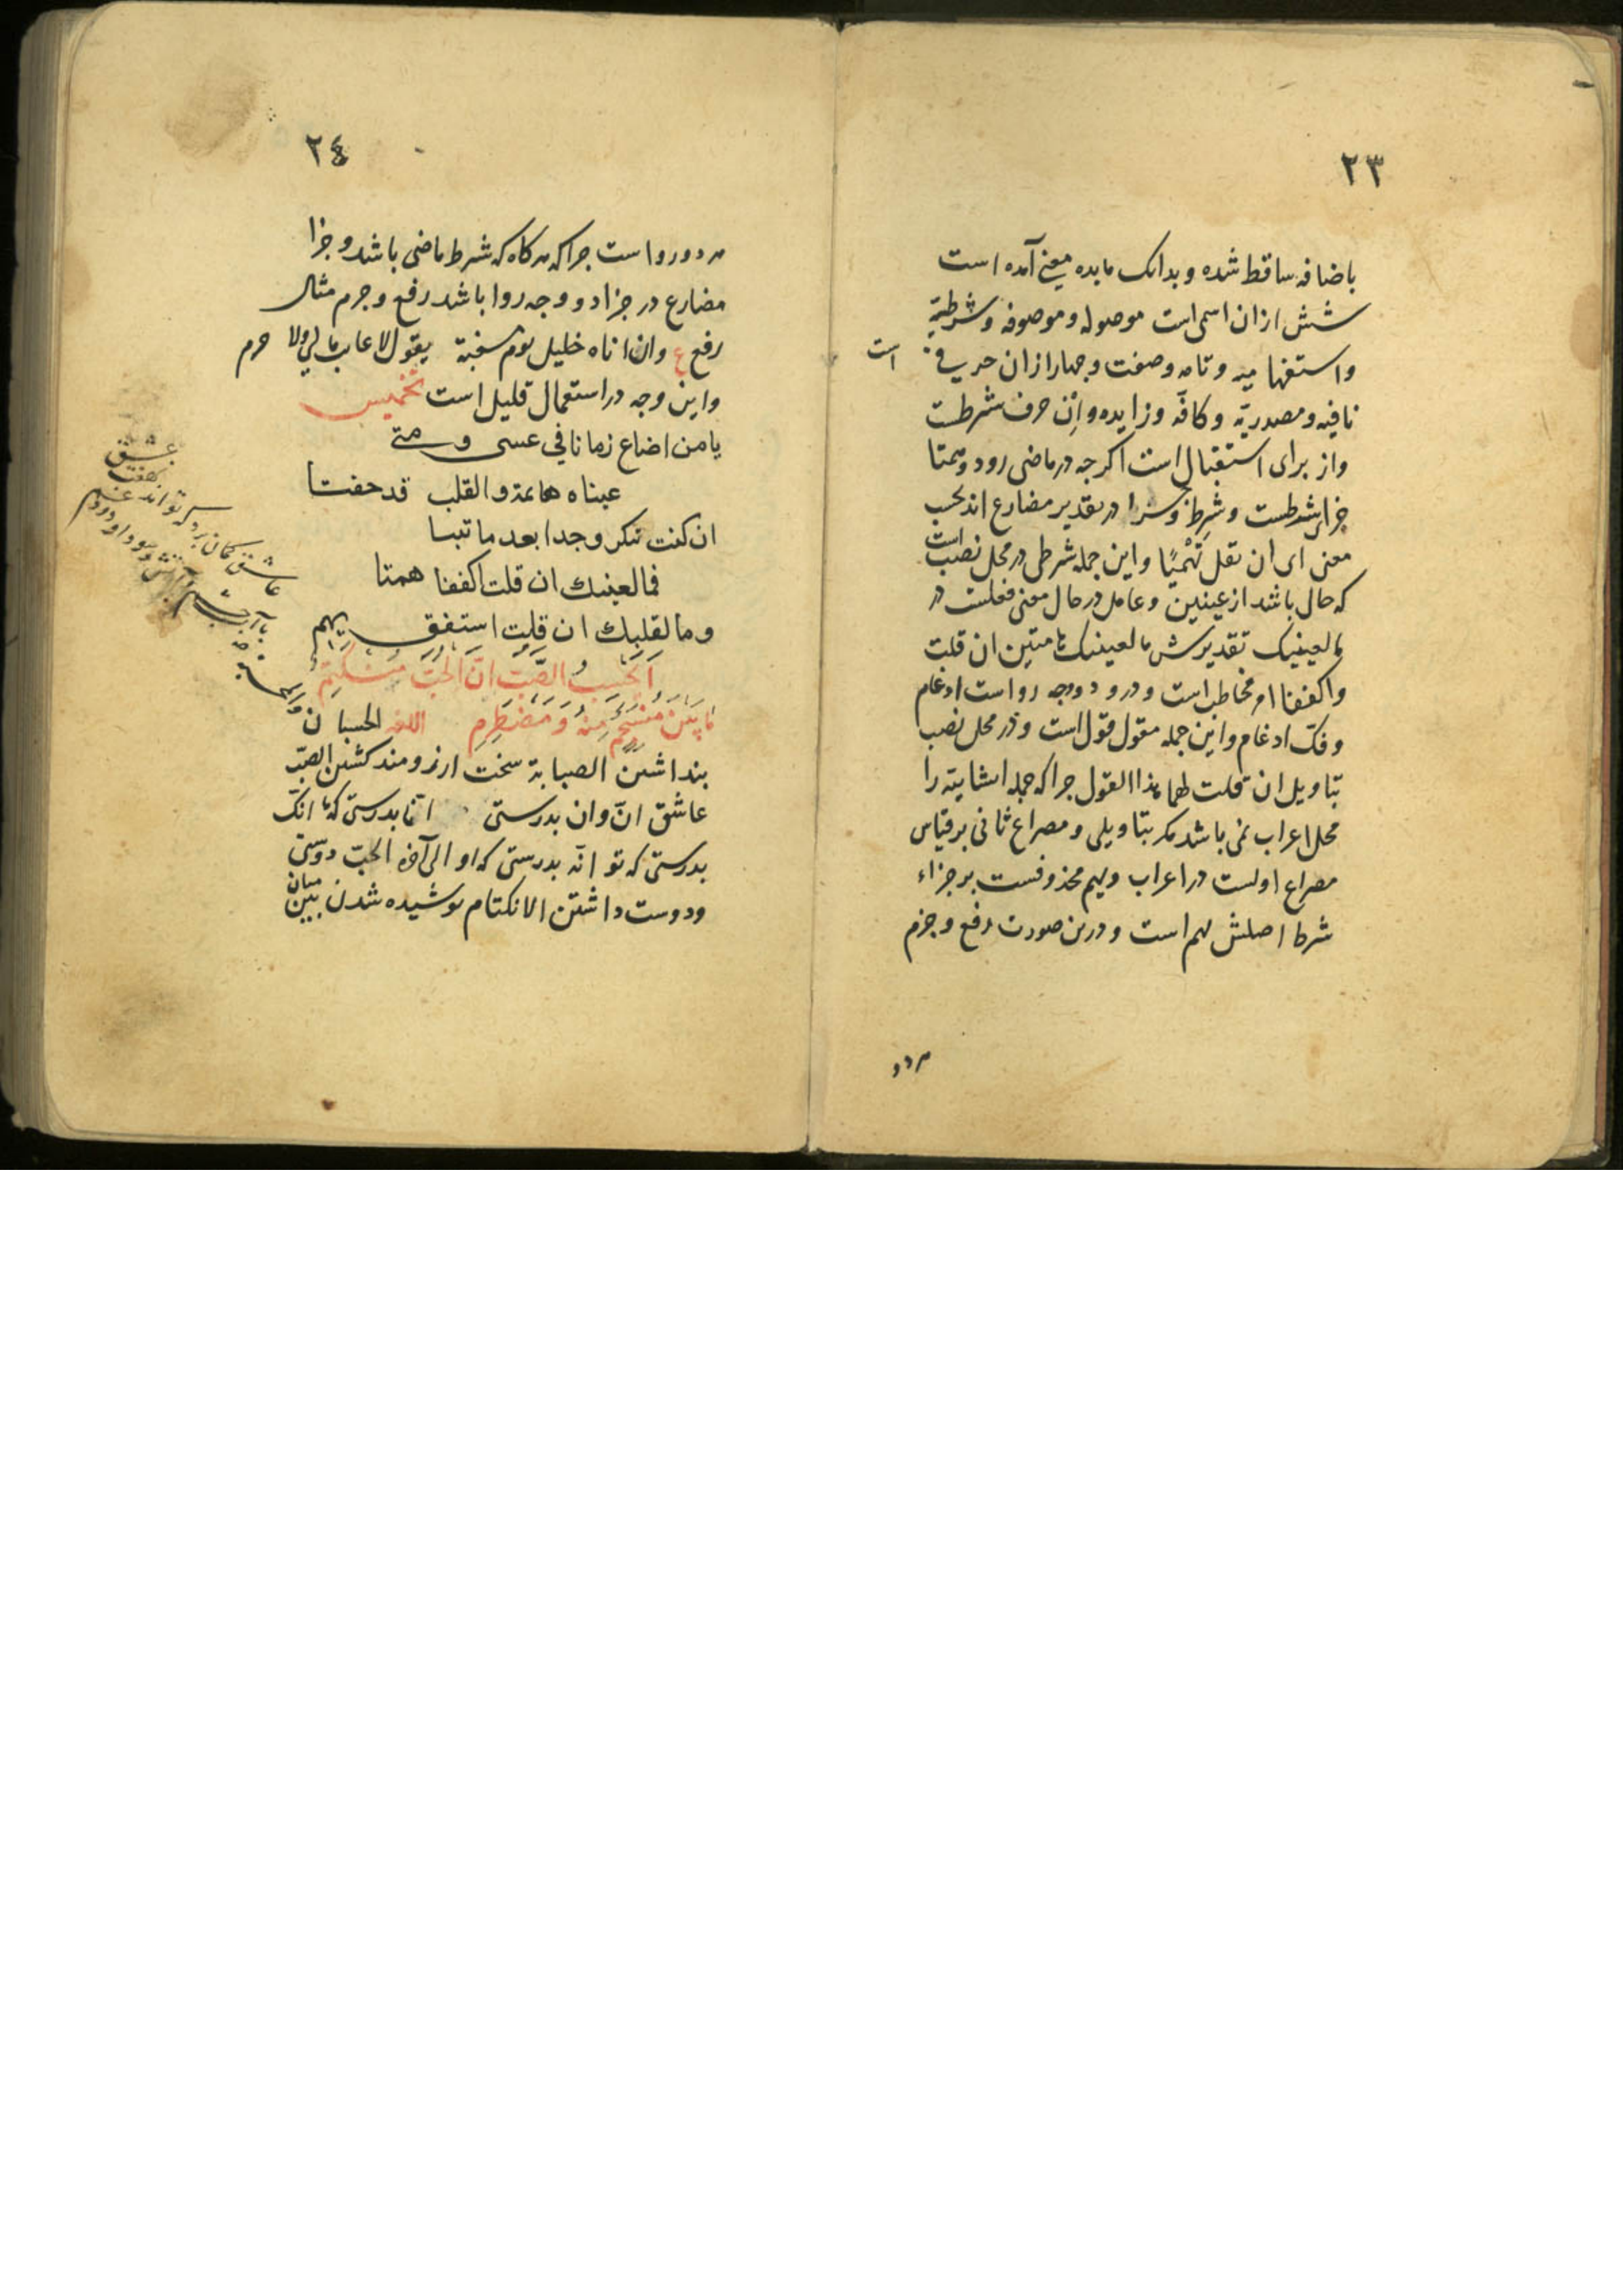 ٢٣
باضافه ساقط شده وبدانک ما بده معنی آمده است
شش ازان اسمی است موصوله و موصوفه و شرطیّة
واستفهامیه وتامه وصفت وجهار ازان حرفی است
نافیه ومصدریّة وکافّه وزایده واِنْ حرف شرطست
واز برای استقبال است اکرجه در ماضی رود وهمتا
جزای شرطست وشرط و در تقدیر مضارع اند بحسب
معنی ای ان تقل تَهْمِیًا واین جمله شرطی در محل نصب است
که حال باشد از عینین وعامل در حال معنی فعلست در
ما لعینیک تقدیرش ما لعینیک هامتین ان قلت
واکففا امر مخاطب است ودرو دو وجه رواست ادغام
وفکّ ادغام واین جمله مقول قول است ودر محل نصب
بتاویل ان قلت لهما هذا القول جرا که جمله انشاییّة را
محل اعراب نمی باشد مکر بتاویلی ومصراع ثانی بر قیاس
مصراع اولست در اعراب ویهم محذوفست بر جزاء
شرط اصلش یهیم است ودرین صورت رفع وجزم
هر دو
٢٤
هر دو رواست جرا که هرکاه که شرط ماضی باشد وجزا
مضارع در جزا دو وجه روا باشد رفع وجزم مثال
رفع ع وان اتاه خلیل یوم مسغبة یقول لا غایب مالی ولا حرم
واین وجه در استعمال قلیل است تخمیس
یا من اضاع زمانا فی عسی ومتی
عیناه هائمة والقلب قد خفتا
ان کنت تنکر وجدا بعد ما ثبتا
فما لعینیك ان قلت اکففا همتا
وما لقلبك ان قلت استفق یهم
اَیَحْسَبُ الصَّبُّ انَّ الحُبَّ مُنْکَتِمٌ
مَا بَیْنَ مُنْسَجِمٍ مِنْهُ وَمُضْطَرِمِ اللغة الحسبان
بنداشتن الصبابة سخت ارزومند کشتن الصبّ
عاشق انّ وان بدرستی انّا بدرستی که ما انک
بدرستی که تو انّه بدرستی که او الی آخره الحبّ دوستی
ودوست داشتن الانکتام بوشیده شدن بین میان
عاشق کمان برد که تواند نهفت عشق